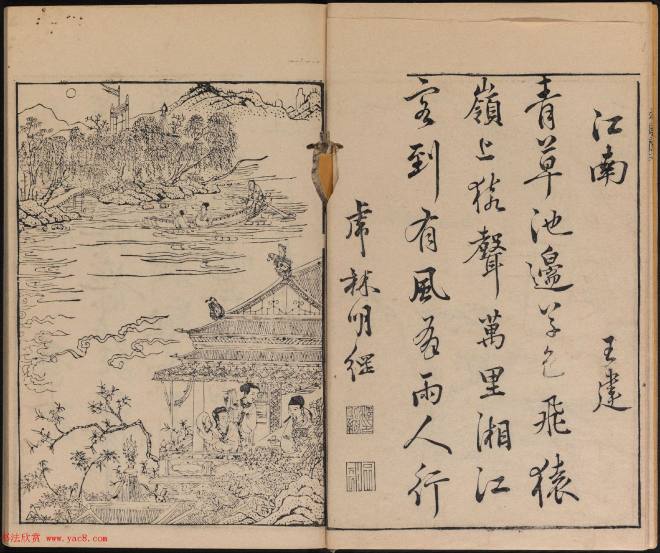 江南
王建
青草池邊草色飛猿
嶺上猿聲萬里湘江
客到有風有雨人行
虎林明
书法欣赏 www.yac8.com